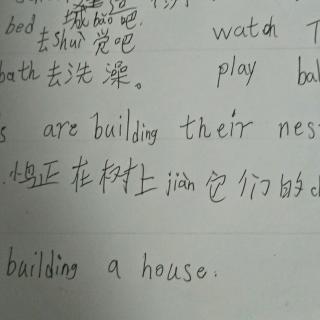 城bǎo吧.
bed 去shuì觉吧 watch
bath 去洗澡。 play bal
s are building their nes
小鸟正在树上jiàn它们的c
building a house.